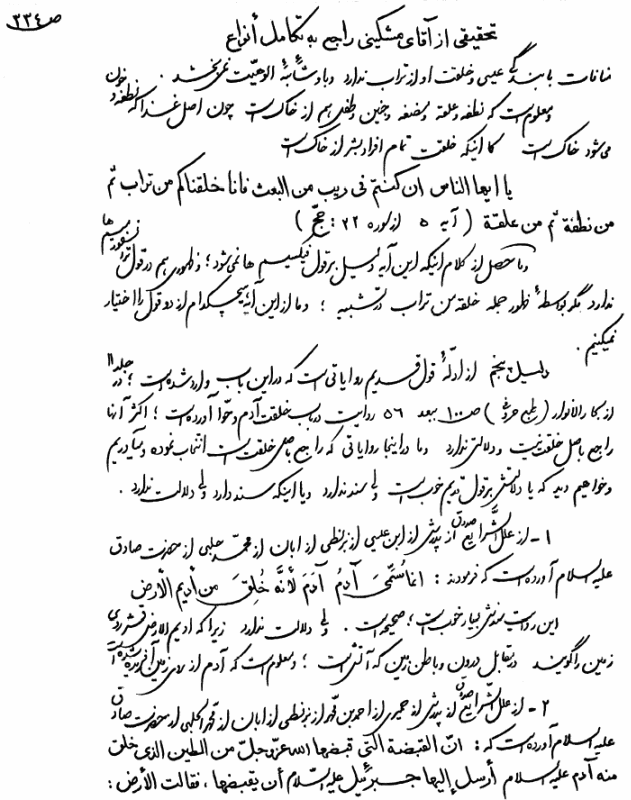 ص ٣٣٤
تحقیقی از آقای مشکینی راجع به تکامل أنواع
منافات با بندگی عیسی و خلقت او از تراب ندارد و باو شائبهٔ الوهیّت نمی‌بخشد.
و معلوم است که نطفه و علقه و مضغه و جنین و طفل هم از خاک است چون اصل غذا که نطفه و خون
می‌شود خاک است کما اینکه خلقت تمام افراد بشر از خاک است
یا ایها الناس ان کنتم فی ریب من البعث فانا خلقناکم من تراب ثم
من نطفة ثم من علقة (آیه ٥ از سوره ٢٢: حجّ)
و ماحصل از کلام اینکه این آیه دلیل بر قول فیکسیسم‌ها نمی‌شود؛ و ظهوری هم در قول ترانسفورمیسم‌ها
ندارد مگر بواسطهٔ ظهور جمله خلقه من تراب در تشبیه؛ و ما از این آیه هیچکدام از دو قول را اختیار
نمیکنیم.
دلیل پنجم از ادلّهٔ قول قدیم روایاتی است که در این باب وارد شده است؛ در جلد ١١
از بحار الانوار (طبع حروفی) ص ١٠٠ ببعد ٥٦ روایت در باب خلقت آدم و حوّا آورده است؛ اکثر آنها
راجع باصل خلقت نیست و دلالتی ندارد و ما در اینجا روایاتی که راجع باصل خلقت است انتخاب نموده و میآوریم
و خواهیم دید که یا دلالتش بر قول قدیم خوب است ولی سند ندارد و یا اینکه سند دارد ولی دلالت ندارد.
١- از علل الشّرایع صدوق از پدرش از ابن عیسی از بزنطی از ابان از محمّد حلبی از حضرت صادق
علیه السلام آورده است که فرمودند: انما سُمّیَ آدمُ آدمَ لأنَّه خُلِقَ من أدیم الأرض
این روایت سندش بسیار خوب است؛ صحیحه است. ولی دلالت ندارد زیرا که ادیم الارض قشر روی
زمین را گویند در مقابل درون و باطن زمین که آتشی است؛ و معلوم است که آدم از روی زمین آفریده شده است
٢- از علل الشّرایع صدوق از پدرش از حمیری از احمد بن محمّد از بزنطی از ابان از محمّد الحلبی از حضرت صادق
علیه السلام آورده است که: انّ القبضة التی قبضها الله عزّ و جلّ من الطین الذی خلق
منه آدم علیه السلام أرسل إلیها جبرئیل علیه السّلام أن یقبضها، فقالت الأرض: